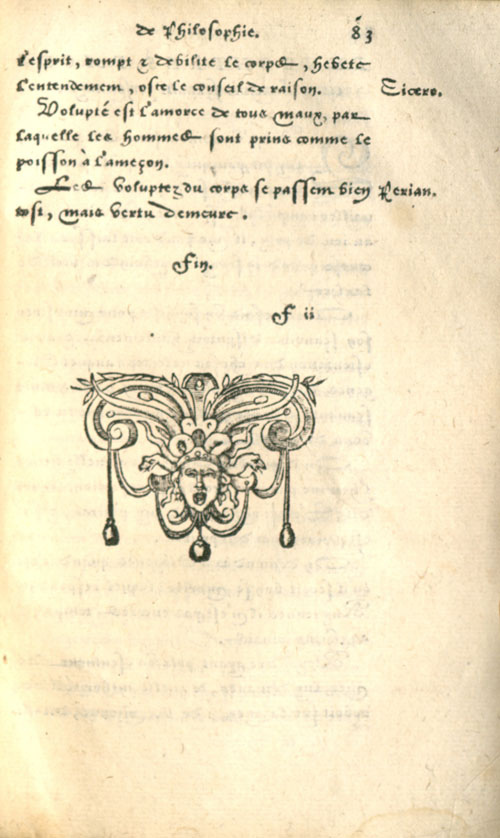 de Philosophie. 83
l'esprit, rompt & debilite le corps, hebete
l'entendement, oste le conseil de raison. Cicero.
Volupté est l'amorce de tous maux, par
laquelle les hommes sont prins comme le
poisson à l'ameçon.
Les voluptez du corps se passent bien Perian.
tost, mais vertu demeure.
Fin.
F ii